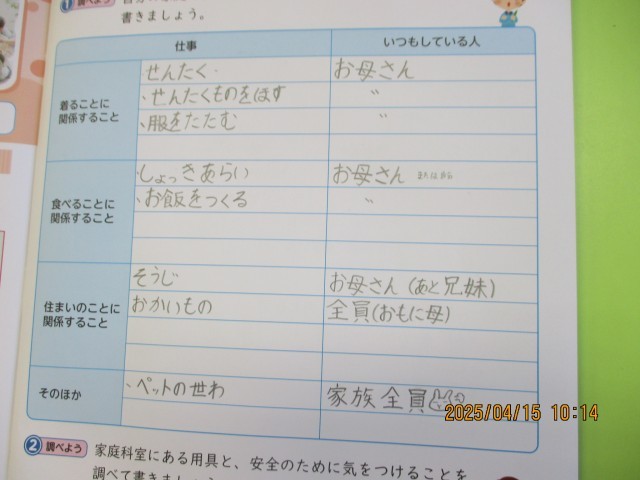 1 調べよう
書きましょう。
仕事 いつもしている人
着ることに関係すること
・せんたく お母さん
・せんたくものをほす 〃
・服をたたむ 〃
食べることに関係すること
・しょっきあらい お母さん
・お飯をつくる 〃
住まいのことに関係すること
そうじ お母さん(あと兄妹)
おかいもの 全員(おもに母)
そのほか
・ペットの世わ 家族全員
2025/04/15 10:14
2 調べよう 家庭科室にある用具と、安全のために気をつけることを
調べて書きましょう